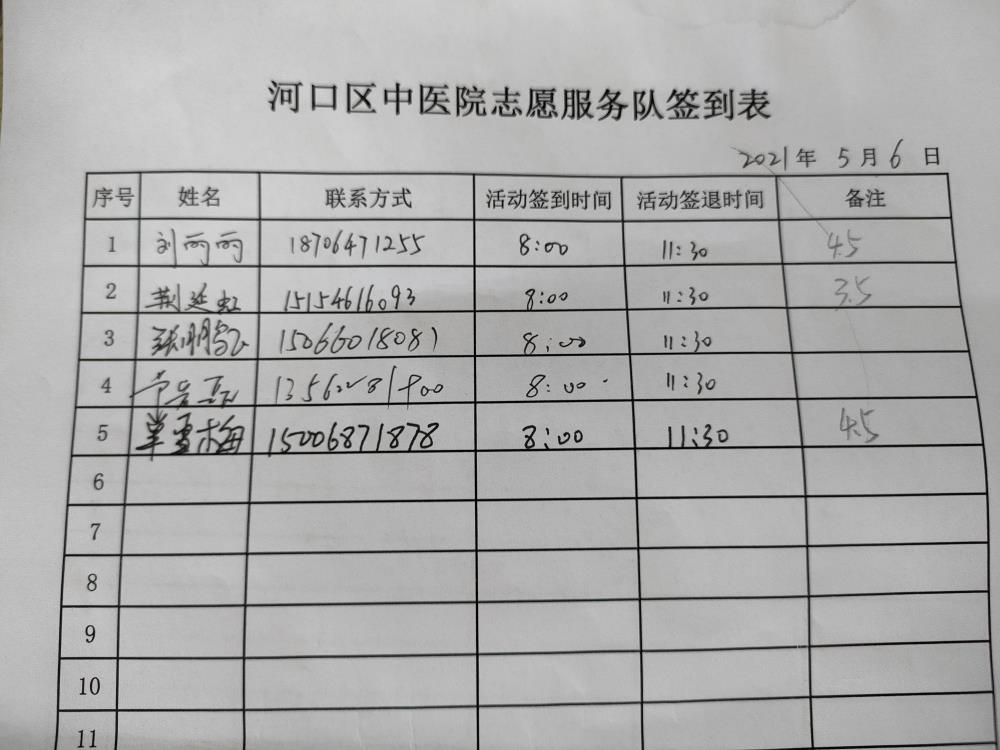 河口区中医院志愿服务队签到表
2021年 5月6日
序号 姓名 联系方式 活动签到时间 活动签退时间 备注
1 刘丽丽 18706471255 8:00 11:30 4.5
2 荆延虹 15154616093 8:00 11:30 3.5
3 15066018081 8:00 11:30
4 8:00 11:30
5 单雪梅 15006871878 8:00 11:30 4.5
6
7
8
9
10
11